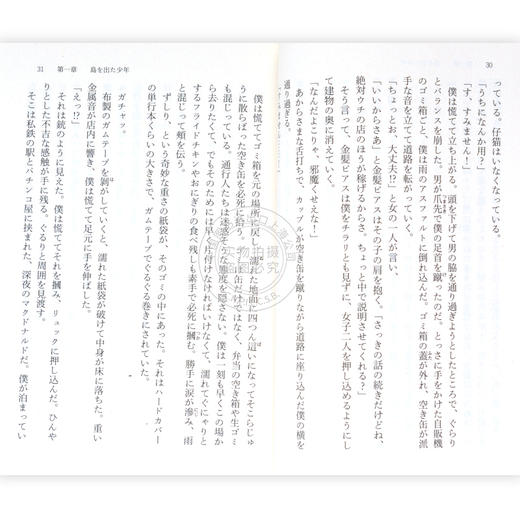 30
っている。仔猫はいなくなっている。
「うちになんか用?」
「す、すみません!」
僕は慌てて立ち上がる。頭を下げて男の脇を通り過ぎようとしたところで、ぐらり
とバランスを崩した。男が爪先で僕の足首を蹴ったのだ。とっさに手をかけた自販機
のゴミ箱ごと、僕は雨のアスファルトに倒れ込んだ。ゴミ箱の蓋が外れ、空き缶が派
手な音を立てて道路を転がっていく。
「ちょっとお、大丈夫?」と女の一人が言い、
「いいからさあ」と金髪ピアスはその子の肩を抱く。「さっきの話の続きだけどね、
絶対ウチの店のほうが稼げるからさ、ちょっと中で説明させてくれる?」
そう言って、金髪ピアスは僕をチラりとも見ずに、女子二人を押し込めるようにし
て建物の奥に消えていく。
「なんだよこりゃ、邪魔くせえな」
あからさまな舌打ちで、カップルが空き缶を蹴りながら道路に座り込んだ僕の横を
通り過ぎる。
31 第一章 島を出た少年
僕は慌ててゴミ箱を元の場所に戻し、濡れた地面に四つん這いになってそこらじゅ
うに散らばった空き缶を必死に拾う。空き缶だけではなく、弁当の空き箱や生ゴミ
も混じっている。通行人たちは迷惑そうな態度を隠さない。僕は一刻も早くこの場か
ら去りたくて、でもそのためには早く片付けなければいけなくて、濡れてぐにゃりと
するフライドチキンやおにぎりの食べ残しも素手で必死に掴む。勝手に涙が滲み、雨
と混じって頬を伝う。
ずしり、という奇妙な重さの紙袋が、そのゴミの中にあった。それはハードカバー
の単行本くらいの大きさで、ガムテープでぐるぐる巻きにされていた。
ガチャッ。
布製のガムテープを剝がしていくと、濡れた紙袋が破けて中身が床に落ちた。重い
金属音が店内に響き、僕は慌てて足元に手を伸ばした。
「えっ!?」
それは銃のように見えた。僕は慌ててそれを掴み、リュックに押し込んだ。ひんや
りとした不吉な感触が手に残る。ぐるりと周囲を見渡す。
そこは私鉄の駅とパチンコ屋に挟まれた、深夜のマクドナルドだ。僕が泊まってい